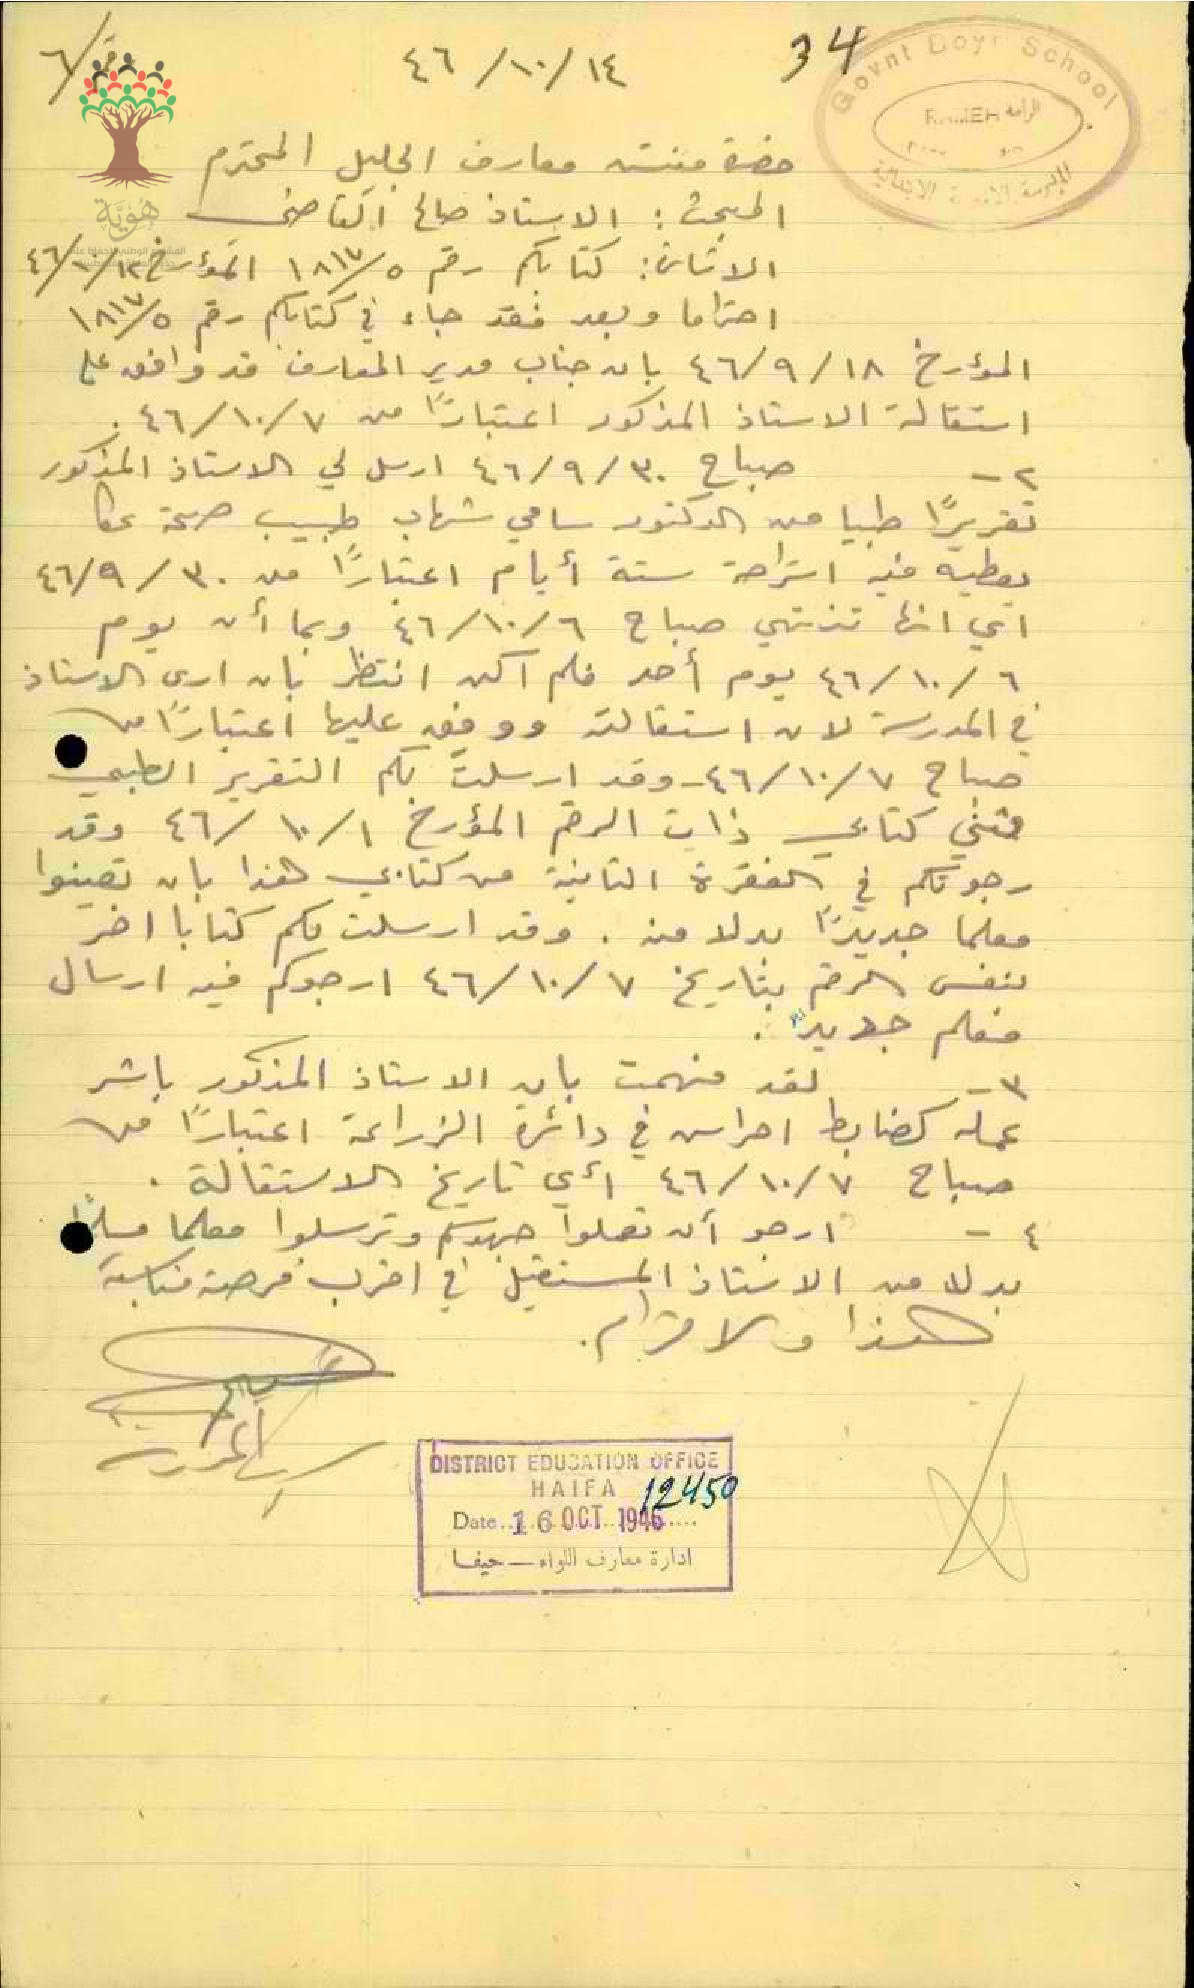 34
٤٦/١٠/١٤
رقم/٦
Govnt Boys School
الرامة
هُويَّة
حضرة مفتش معارف الجليل المحترم
المبحث: الاستاذ صالح القاضي
الاشارة: كتابكم رقم ١٨١٧/٥ المؤرخ ٤٦/١٠/١٢
احتراما وبعد فقد جاء في كتابكم رقم ١٨١٧/٥
المؤرخ ٤٦/٩/١٨ بان جناب مدير المعارف قد وافق على
استقالة الاستاذ المذكور اعتبارًا من ٤٦/١٠/٧.
٢ـ صباح ٤٦/٩/٣٠ ارسل لي الاستاذ المذكور
تقريرًا طبيا من الدكتور سامي شهاب طبيب صحة عكا
يعطيه فيه استراحة ستة أيام اعتبارًا من ٤٦/٩/٣٠
اي انها تنتهي صباح ٤٦/١٠/٦ وبما أن يوم
٤٦/١٠/٦ يوم أحد فلم اكن انتظر بان ارى الاستاذ
في المدرسة لان استقالته ووفق عليها اعتبارًا من
صباح ٤٦/١٠/٧ـ وقد ارسلت لكم التقرير الطبي
ضمن كتابي ذات الرقم المؤرخ ٤٦/١٠/١ وقد
رجوتكم في الفقرة الثانية من كتابي هذا بان تعينوا
معلما جديدًا بدلا منه. وقد ارسلت لكم كتابا اخر
بنفس الرقم بتاريخ ٤٦/١٠/٧ ارجوكم فيه ارسال
معلم جديد.
٣ـ لقد فهمت بان الاستاذ المذكور باشر
عمله كضابط احراس في دائرة الزراعة اعتبارًا من
صباح ٤٦/١٠/٧ أي تاريخ الاستقالة.
٤ـ ارجو أن تعملوا جهدكم وترسلوا معلما مسلمًا
بدلا من الاستاذ المستقيل في اقرب فرصة مناسبة
هذا والاحترام.
DISTRICT EDUCATION OFFICE
HAIFA
12450
Date 16 OCT 1946
ادارة معارف اللواء ـ حيفا